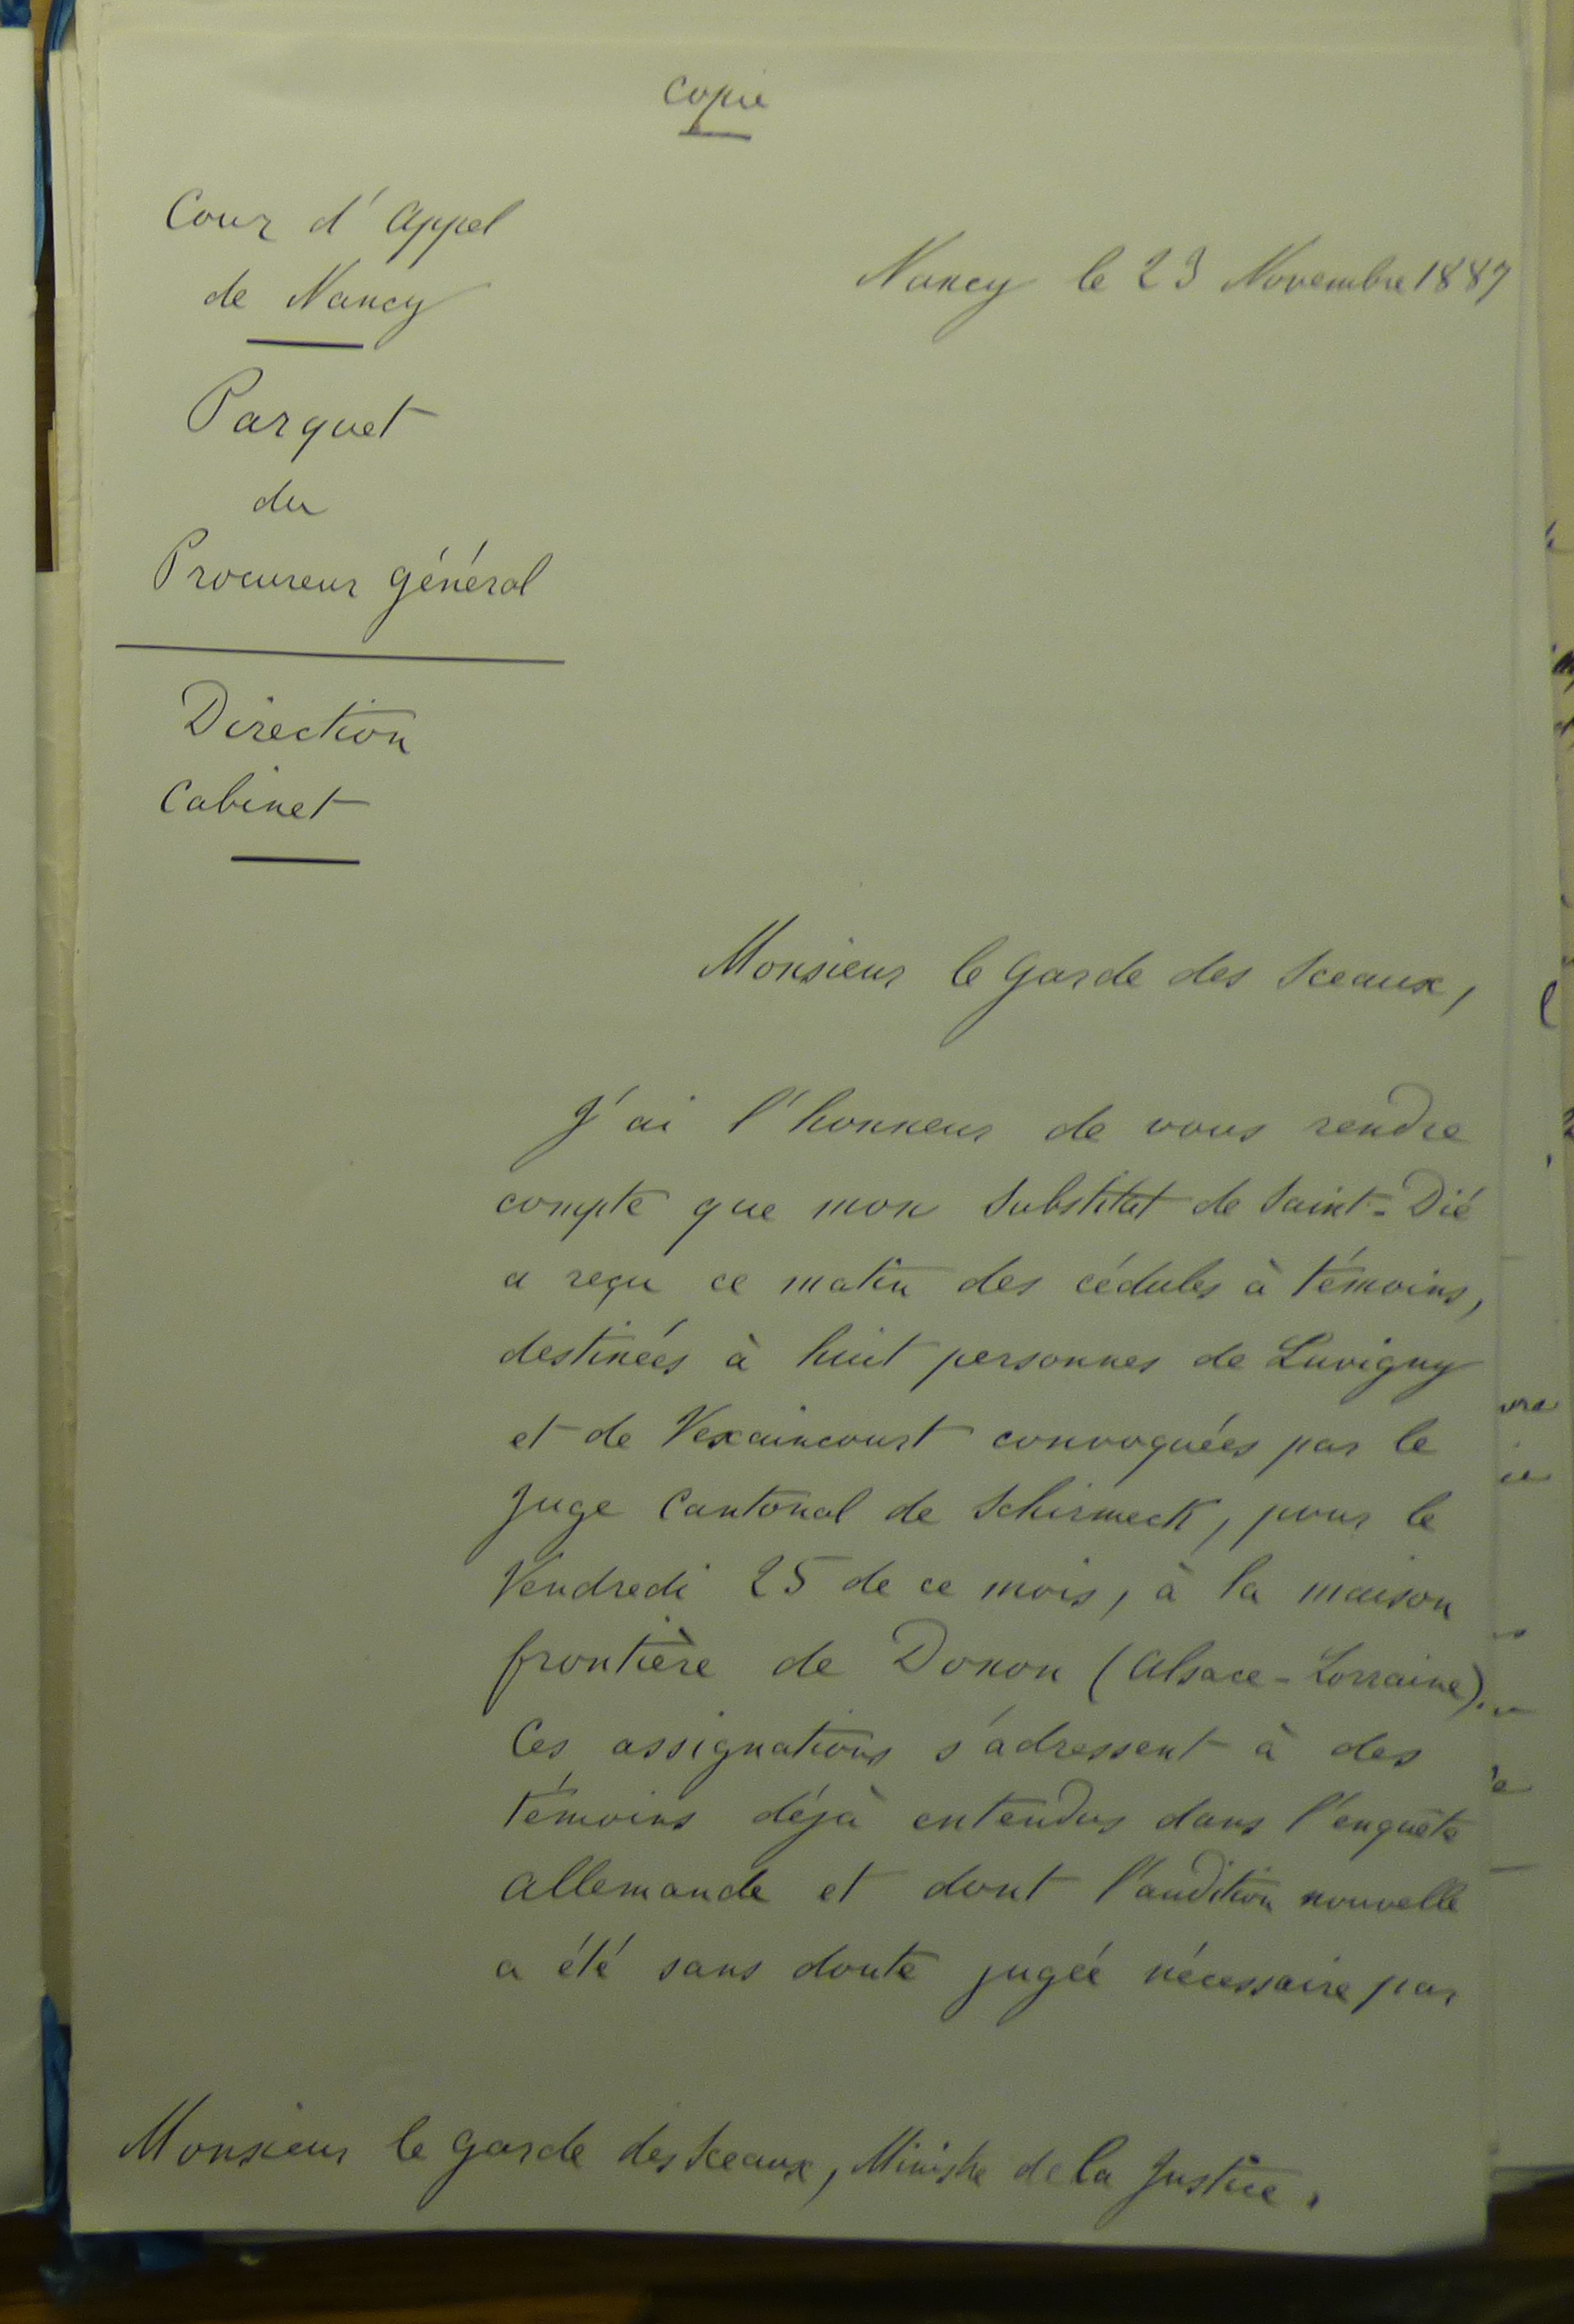 Copie
Cour d'Appel
de Nancy
Nancy le 23 Novembre 1887
Parquet
du
Procureur général
Direction
Cabinet
Monsieur le Garde des Sceaux,
J'ai l'honneur de vous rendre
compte que mon Substitut de Saint-Dié
a reçu ce matin des cédules à témoins,
destinées à huit personnes de Luvigny
et de Vexaincourt convoquées par le
Juge Cantonal de Schirmeck, pour le
Vendredi 25 de ce mois, à la maison
frontière de Donon (Alsace-Lorraine).
Ces assignations s'adressent à des
témoins déjà entendus dans l'enquête
allemande et dont l'audition nouvelle
a été sans doute jugée nécessaire par
Monsieur le Garde des Sceaux, Ministre de la Justice.